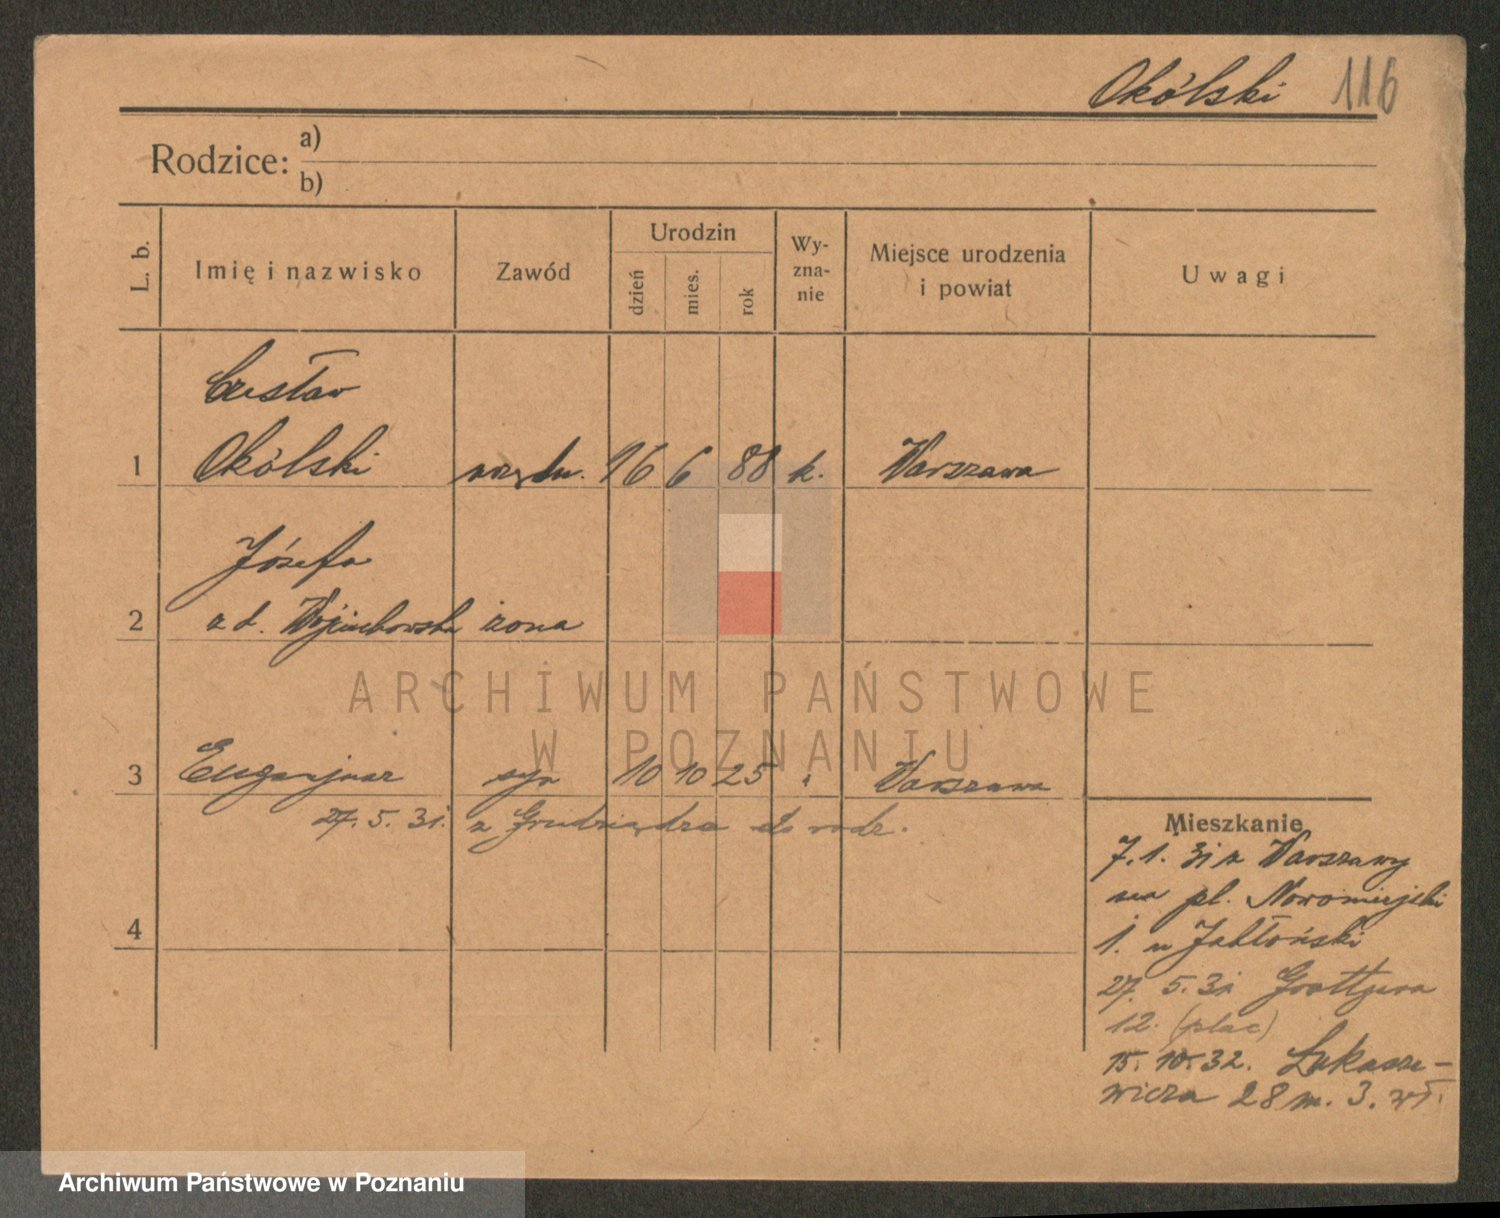 Okólski 116
Rodzice: a)
b)
L. b.
Imię i nazwisko
Zawód
Urodzin
dzień
mies.
rok
Wy-
zna-
nie
Miejsce urodzenia
i powiat
Uwagi
Czesław
1 Okólski urzędn. 16 6 88 k. Warszawa
Józefa
2 z d. Wojciechowska żona
ARCHIWUM PAŃSTWOWE
W POZNANIU
3 Eugenjusz syn 10 10 25 " Warszawa
27. 5. 31. z Grudziądza do rodz.
4
Mieszkanie
7. 1. 31 z Warszawy
na pl. Nowomiejski
1. u Jabłoński
27. 5. 31 Grottgera
12. (plac)
15. 10. 32. Łukasze-
wicza 28 m. 3. wł.
Archiwum Państwowe w Poznaniu